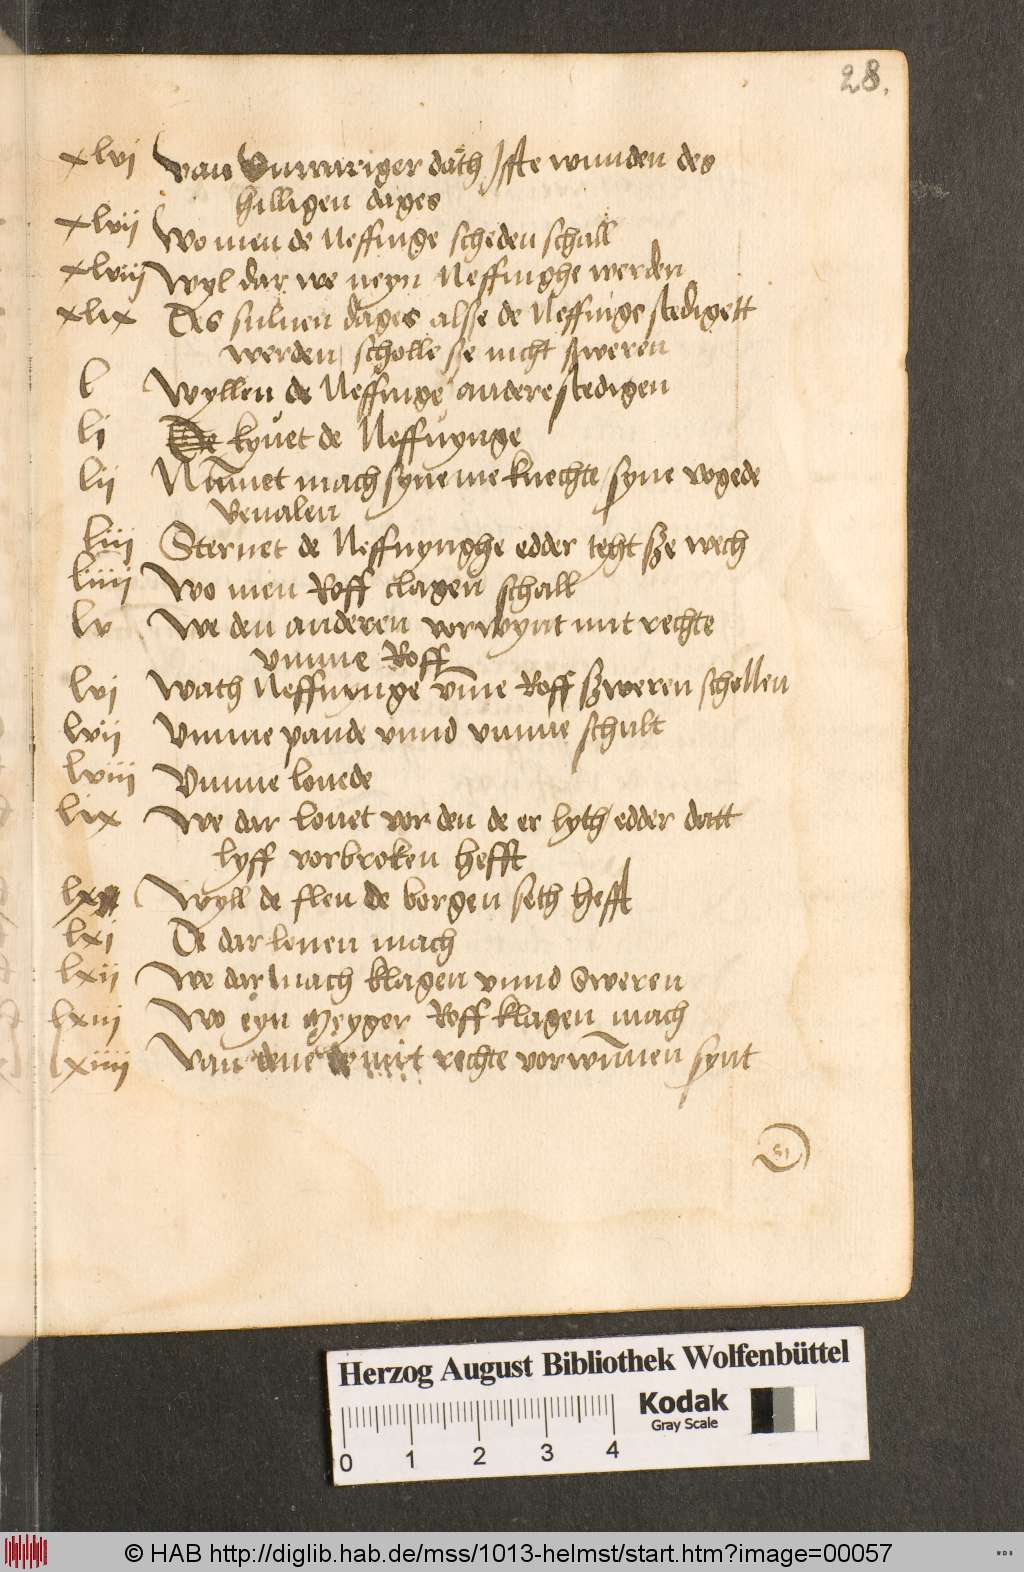 28.
xlvi van vurwariger dath Jffte wunden des
hilligen dages
xlvii Wo men de Neffinge scheden schall
xlviij Wyl dar we neyn Neffinghe werden
xlix Des suluen dages alsse de Neffinge stedigett
werden scholle sze nicht szweren
l Wyllen de Neffinge andere stedigen
li De kyuet de Neffuynge
lii Nimmet mach syneme knechte / syne vogede
beualen
liii Sternet de Neffnynghe edder teyt sze wech
liiii Wo men Roff clagen schall
lv We den anderen vorwynt mit rechte
vmme Roff
lvi Wath Neffnynge vme Roff szweren schollen
lvii Vmme pande vnnd vmme schult
lviii Vmme louede
lix We dar louet vor den de er lyth / edder datt
lyff vorbroken hefft
lx Wyll de flen de borgen seth hefft
lxi De dar lenen mach
lxii We dar mach klagen vnnd Sweren
lxiii Wo eyn Meyger Roff klagen mach
lxiiii Van dene de mit rechte vorwunnen synt
Herzog August Bibliothek Wolfenbüttel
Kodak
Gray Scale
0 1 2 3 4
© HAB http://diglib.hab.de/mss/1013-helmst/start.htm?image=00057